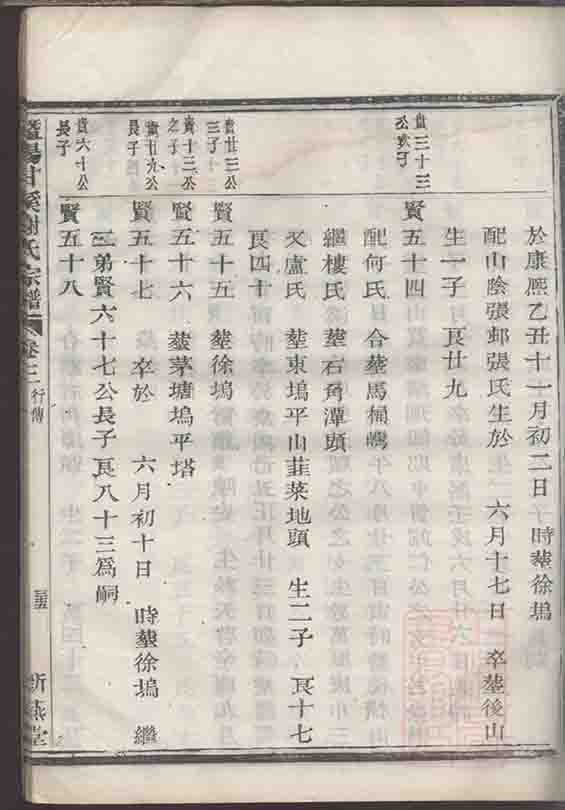 於康熙乙丑十一月初二日 時塟徐塢
配山陰張邨張氏生於 六月十七日 卒塟後山
生一子 艮廿九
貴三十三
公次子
賢五十四
配何氏 合塟馬桶嶴
繼樓氏 塟石角潭頭
又盧氏 塟東塢平山韮菜地頭 生二子 艮十七
艮四十
貴廿三公
三子
賢五十五 塟徐塢
貴十三公
之子
賢五十六 塟茅塘塢平塔
貴廿九公
長子
賢五十七 卒於 六月初十日 時塟徐塢 繼
三弟賢六十七公長子艮八十三為嗣
貴六十公
長子
賢五十八
暨陽甘溪謝氏宗譜 卷十二 行傳